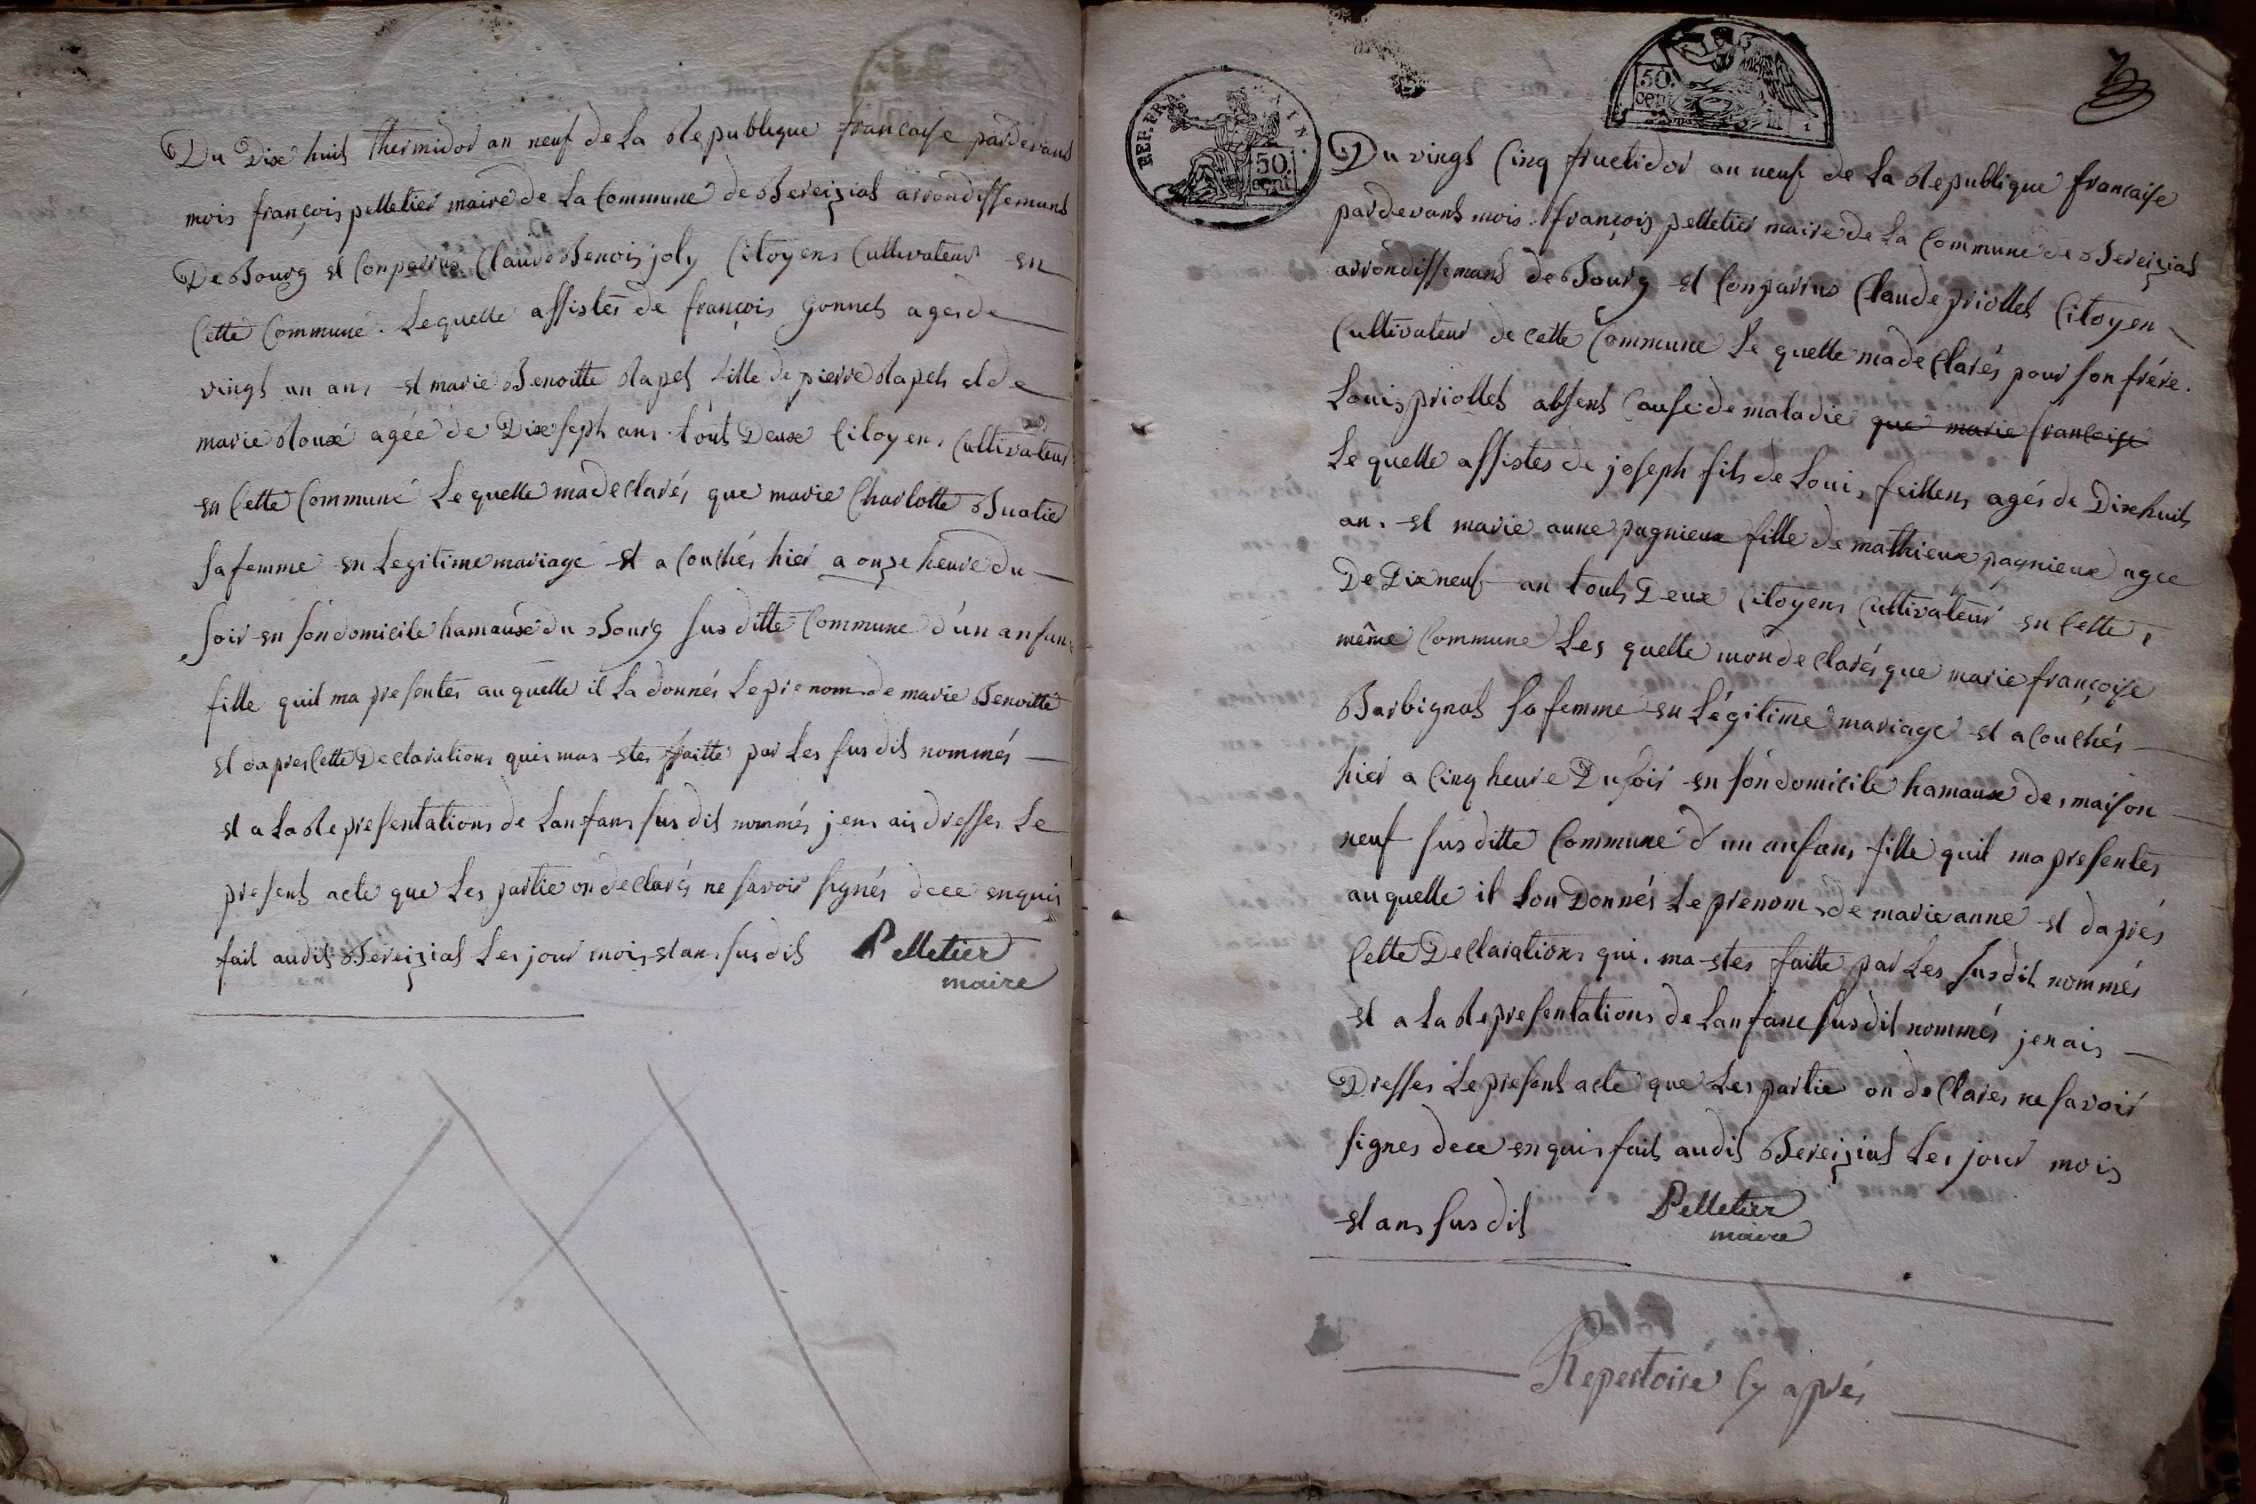 Du Dixe huit thermidor an neuf de La Republique francaise pardevand
mois françois pelletier maire de La Commune de Bereiziat arrondissemant
De Bourg et Conparrus Claude Benois joly Citoyens Cultivateur en
Cette Commune. Lequelle assistés de françois Gonnet ages de
vingt un ans et marie Benoitte Rapet fille de pierre Rapet et de
marie Rouxe agée de Dixe seph ans tout Deuxe Citoyens Cultivateur
en Cette Commune Lequelle madeclarés que marie Charlotte Buatier
sa femme en Legitime mariage et acouchés hier a onze heure du
soir en son domicile hamauxe du Bourg sus ditte Commune d'un anfan
fille quil ma presentés auquelle il La donnés Le prenom de marie Benoitte
et dapres Cette Declarations quis mas etes faitte par Les susdit nommés
et a La Representations de Lanfans susdit nommés jens ais dresses Le
present acte que Les partie on declarés ne savoir signés dece enquis
fait audit Bereiziat Les jour mois et ans susdit Pelletier
maire
REP. FRA.
50.
cent.
50.
cent.
Du vingt Cinq fructidor au neuf de La Republique francaise
pardevant mois françois pelletier maire de La Commune de Bereiziat
arrondissemand de Bourg et Conparrus Claude priollet Citoyen
Cultivateur de Cette Commune Le quelle madeClarés pour son frére.
Louis priollet absent Cause de maladie que marie françoise
Le quelle assistes de joseph fils de Louis feillens agés de Dixehuit
an. et marie anne pagnieux fille de mathieux pagnieux agee
De Dix neuf an touts Deux Citoyens Cultivateur en Cette
même Commune Les quelle mon declarés que marie françoise
Barbignat sa femme en Légitime mariage et acouchés
hier a Cinq heure Du soir en son domicile hamaux des maison
neuf sus ditte Commune d'un anfans fille quil ma presentés
auquelle il Lon Donnés Le prenom de marie anne et dapres
Cette Declarations qui. ma etes faitte par Les susdit nommés
et a La Representations de Lanfans susdit nommés jenais
Dresses Le present acte que Les partie on deClares ne savoir
signes dece enquis fait audit Bereiziat Les jour mois
et ans susdit Pelletier
maire
Repertoire Cy aprés